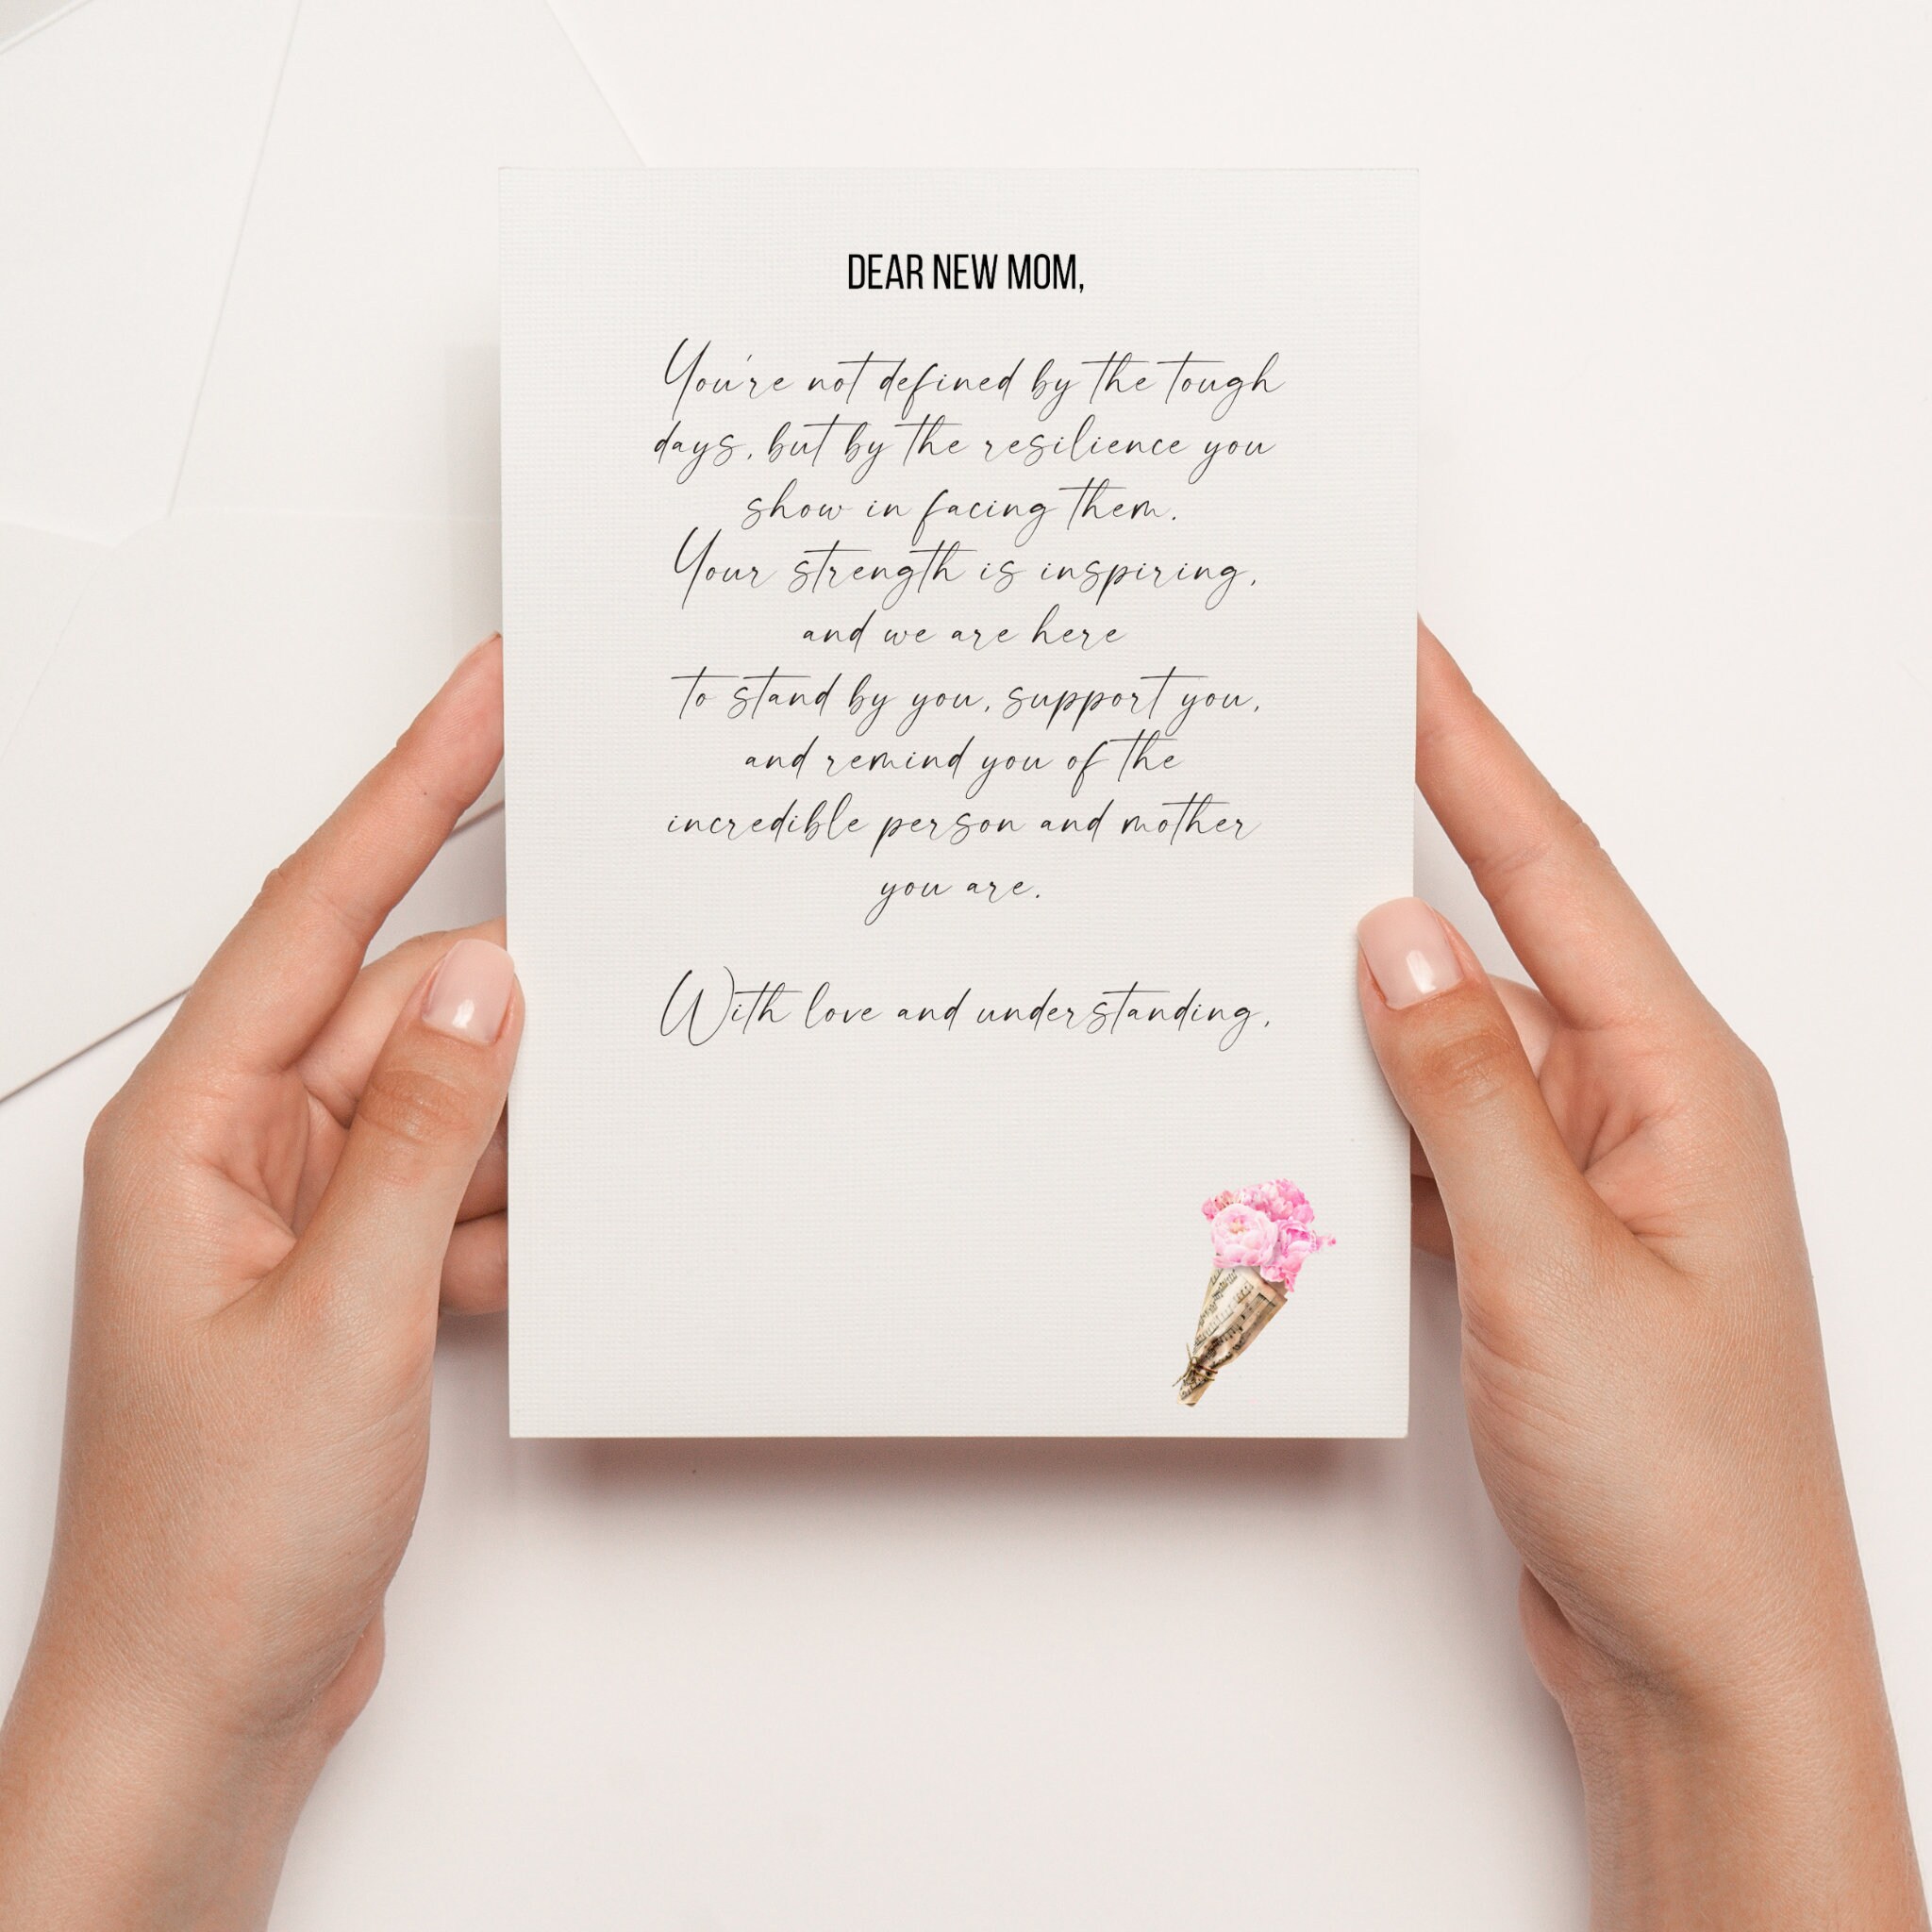 DEAR NEW MOM,
You're not defined by the tough
days, but by the resilience you
show in facing them.
Your strength is inspiring,
and we are here
to stand by you, support you,
and remind you of the
incredible person and mother
you are.
With love and understanding,